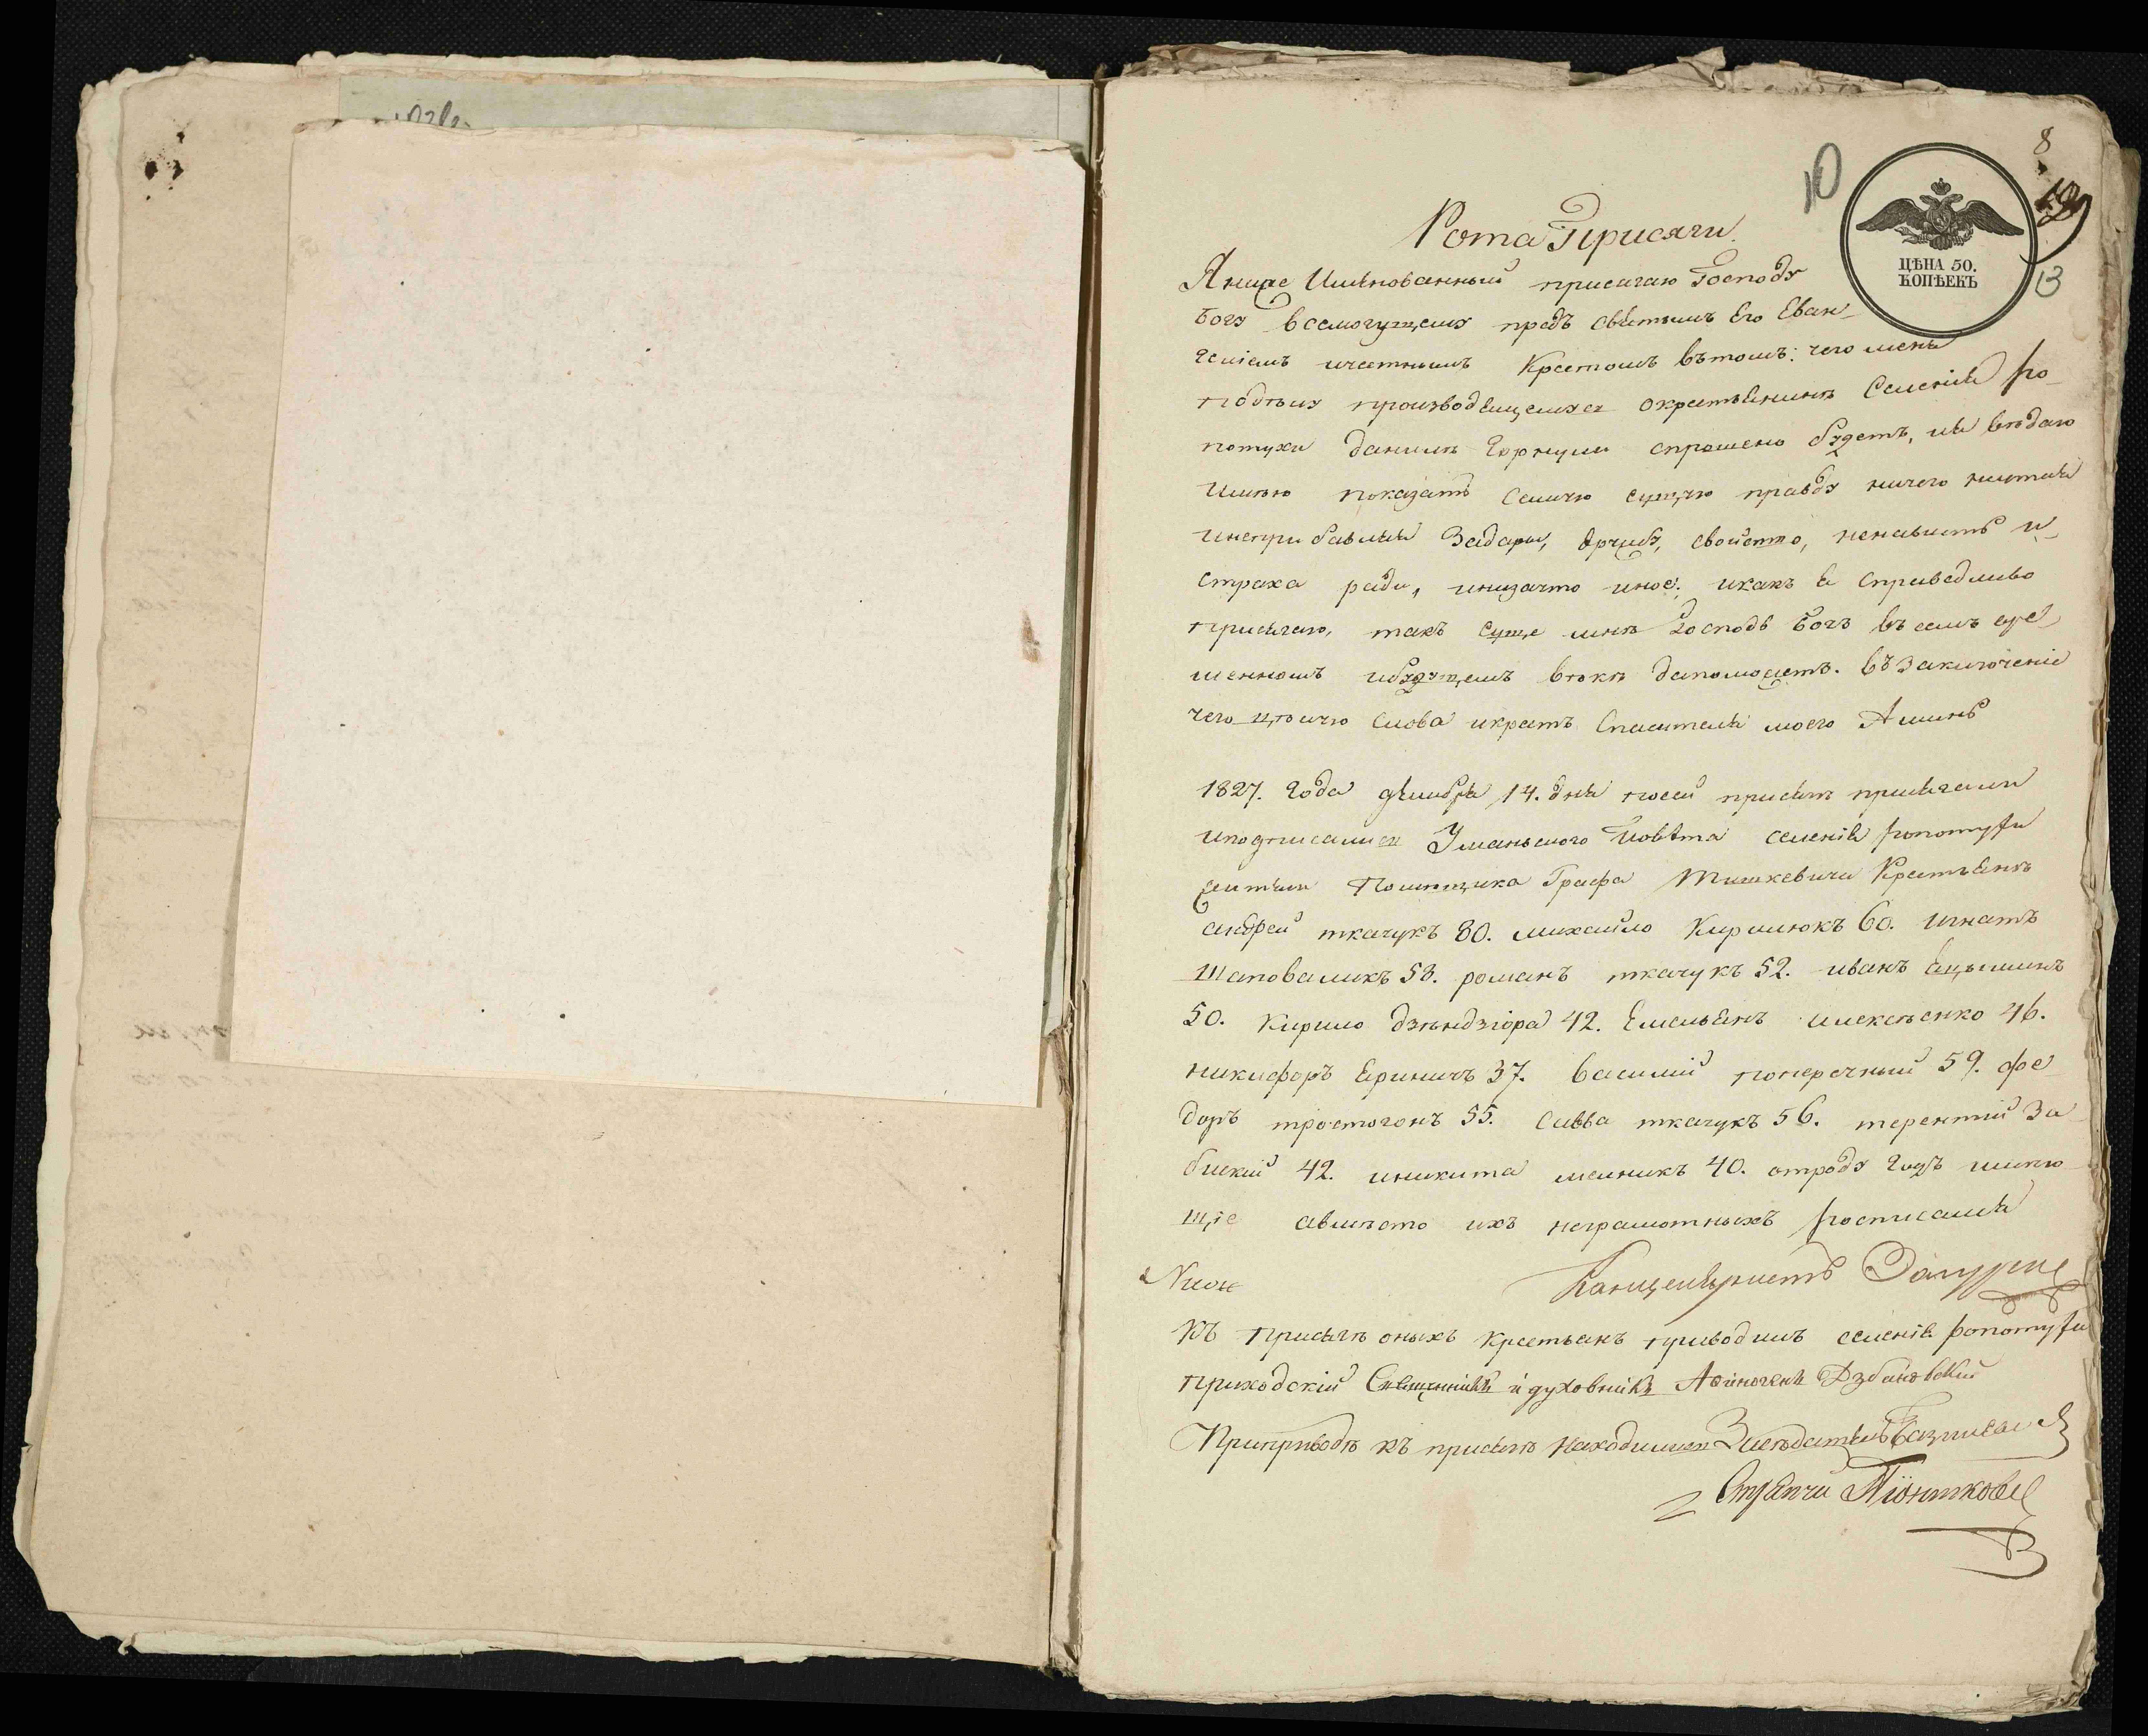 8
10
13
ЦѢНА 50.
КОПѢЕКЪ
Рота Присяги
Я ниже Имянованный присягаю Господу
Богу всемогущему предъ святымъ Его Еван-
гелiемъ ичестнымъ Крестомъ вътомъ: чего меня
подѣлу производящемуся окрестьянинѣ Селенiя ро-
потухи Данилѣ спрошено будетъ, ия вѣдаю
имѣю показать Самую сущую правду ничего нетая
инеприбавляя Задары, дружбу, свойство, ненависть и-
страха ради, инизачто иное: икакъ я справедливо
присягаю, такъ суще мнѣ Господь Богъ въ семъ
иебудущемъ вѣкѣ дапоможетъ. въ Заключенiе
чего цѣлую слова икрестъ Спасителя моего Аминь
1827. Года декабря 14. дня посей присягѣ присягали
иподписались Уманьского Повѣта селенiя ропотухи
жители Помѣщика Графа Тишкевича Крестьянѣ
андрей ткачукъ 80. михайло Кирилюкъ 60. игнатъ
Шаповаликъ 58. романъ ткачукъ 52. иванъ
50. Кирило дзѣндзiора 42. Емельянъ 46.
никифоръ Яриничъ 37. василiй поперечный 59. фе-
доръ простогонъ 55. Савва ткачукъ 56. терентiй За-
бискiй 42. иникита мелникъ 40. отроду Годъ имѣю-
щiе авмѣсто ихъ неграмотныхъ росписался
Канцеляристъ
Къ Присягѣ оныхъ крестьянъ приводилъ селенiя ропотухи
Приходскiй Священникъ и духовникъ Дзбановскiй
Приприводѣ къ присягѣ находились Засѣдатель
Стряпчiй